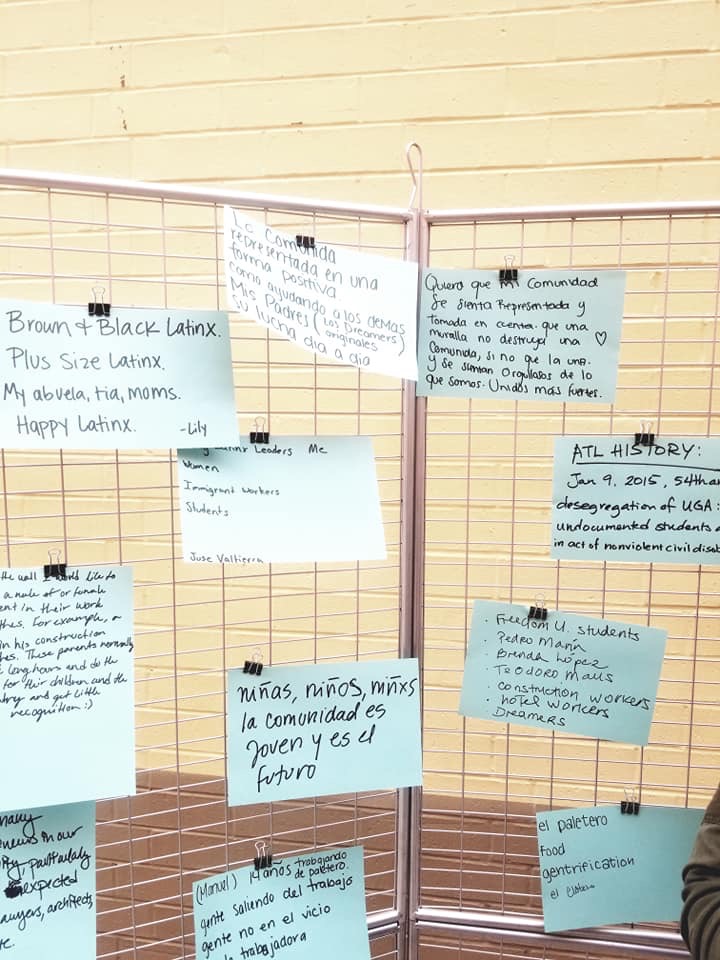 La Comunida
representada en una
forma positiva.
como ayudando a los demas
Mis Padres (Los Dreamers)
originales
su lucha dia a dia
Quiero que Mi Comunidad
Se sienta Representada y
Tomada en cuenta. que una
muralla no destruya una
Comunida, si no que la una.
y se sientan Orgullosos de lo
que somos. Unidos mas fuertes.
Brown & Black Latinx.
Plus Size Latinx.
My abuela, tia, moms.
Happy Latinx.
-Lily
Leaders Me
Women
Immigrant workers
Students
Jose Valtierra
ATL HISTORY:
Jan 9, 2015, 54th
desegregation of UGA:
undocumented students
in act of nonviolent civil
the wall I would like to
a male or or female
in their work
For example, a
in his construction
These parents normally
long hours and do the
for their children and the
and get little
recognition :)
· Freedom U. students
· Pedro Marin
· Brenda López
· Teodoro Maus
· construction workers
· hotel workers
Dreamers
niñas, niños, niñxs
la comunidad es
joven y es el
futuro
many
in our
particularly
expected
lawyers, architects,
el paletero
food
gentrification
el
(Manuel) 14 años trabajando
de paletero.
gente saliendo del trabajo
gente no en el vicio
trabajadora